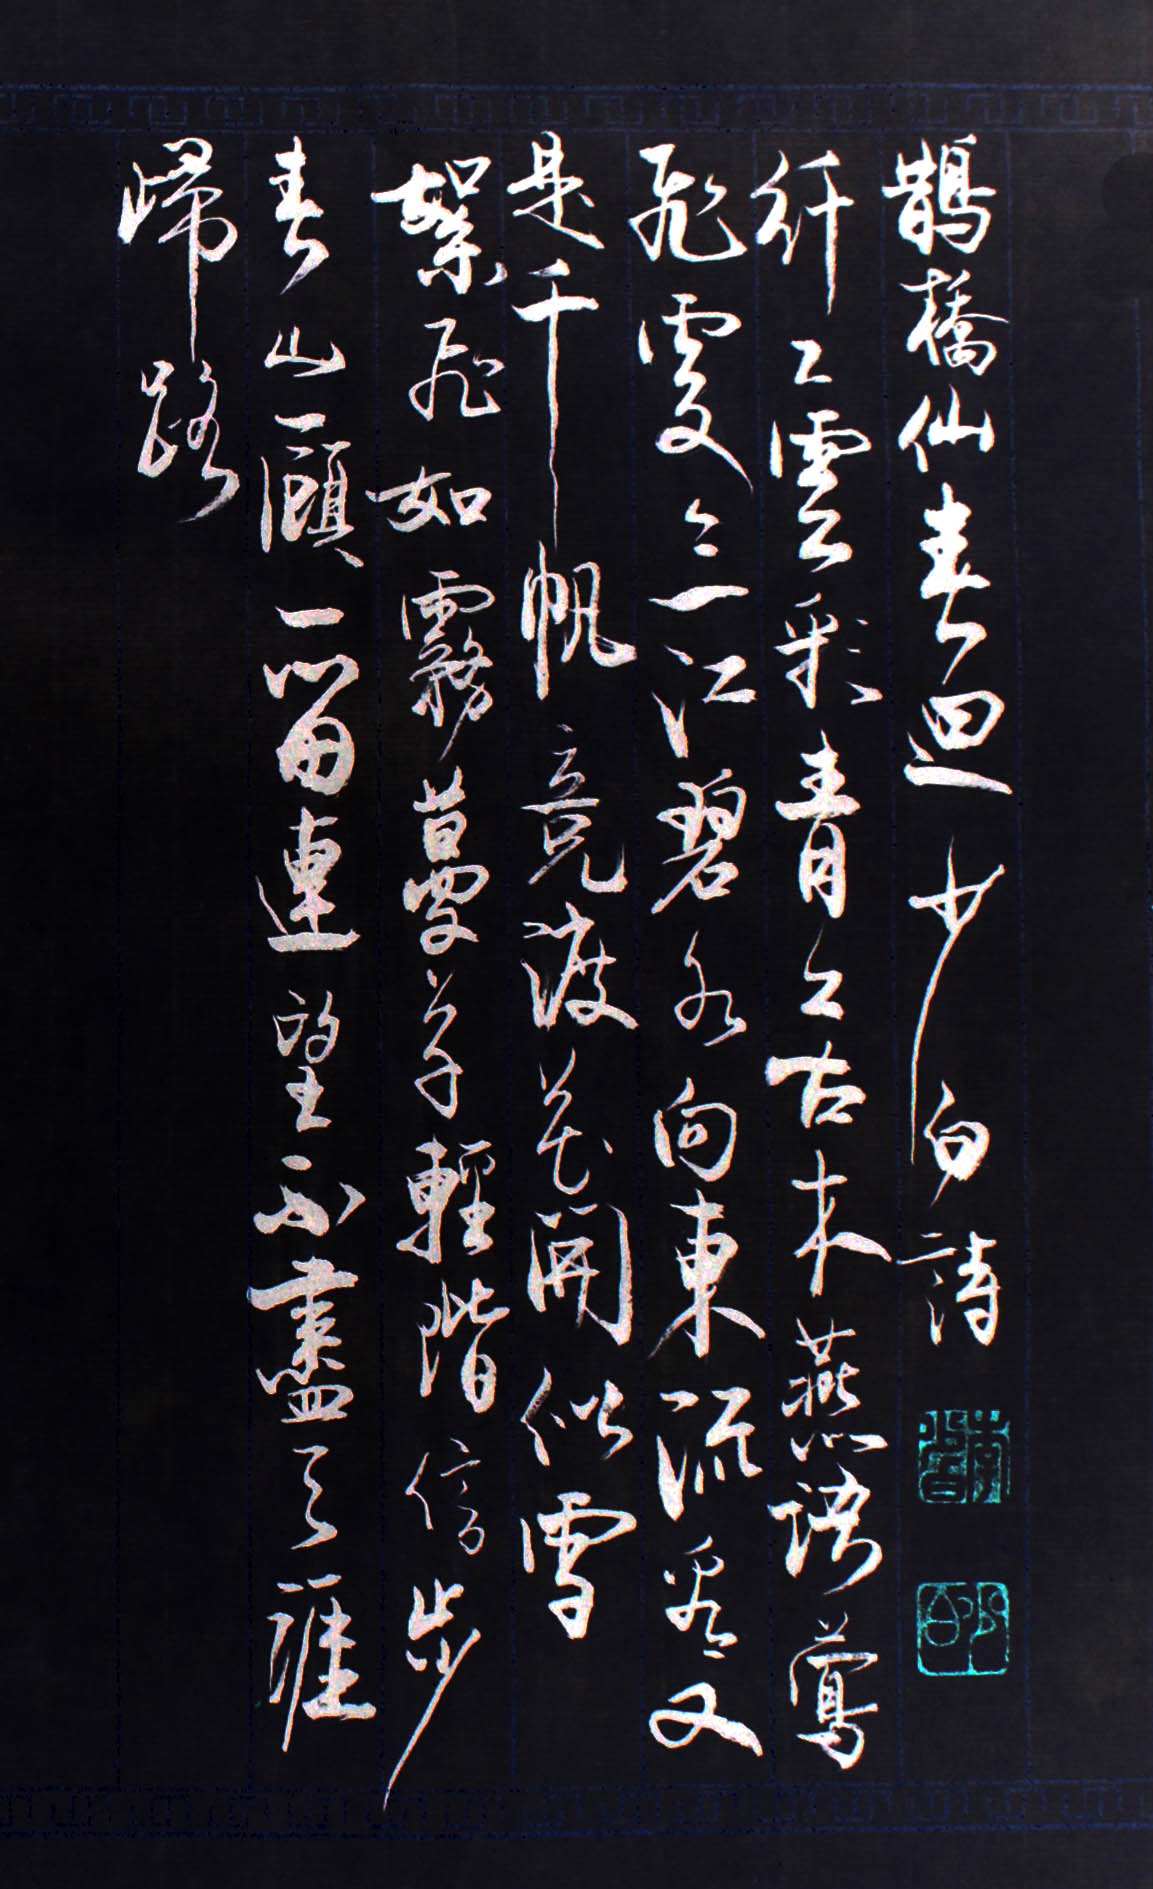 鵲橋仙春迴少白詩
纤々雲彩青々古木燕語鶯
飛雙々一江碧水向東流看又
是千帆競渡花開似雪
絮飛如霧蔓草輕階信步
春山一顧一留連望不盡天涯
歸路